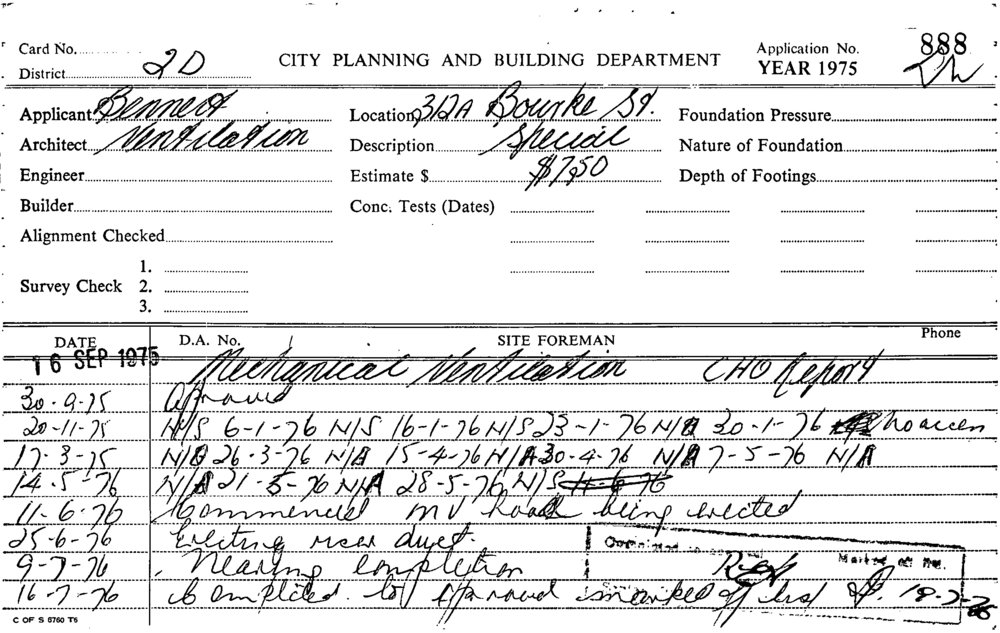 Card No. 888
District 2D CITY PLANNING AND BUILDING DEPARTMENT Application No. YEAR 1975
Applicant Bennett Location 312A Bourke St. Foundation Pressure
Architect Ventilation Description Special Nature of Foundation
Engineer Estimate $ $7,50 Depth of Footings
Builder Conc. Tests (Dates)
Alignment Checked
1.
Survey Check 2.
3.
DATE D.A. No. SITE FOREMAN Phone
16 SEP 1975 Mechanical Ventilation CHO Report
30-9-75 Approved
20-11-75 N/S 6-1-76 N/S 16-1-76 N/S 23-1-76 N/A 30-1-76 No access
17-3-75 N/A 26-3-76 N/A 15-4-76 N/A 30-4-76 N/A 7-5-76 N/A
14-5-76 N/A 21-5-76 N/A 28-5-76 N/S 11-6-76
11-6-76 Commenced MV hood being erected
25-6-76 Erecting riser duct.
9-7-76 Nearing completion Marked off
16-7-76 Completed to approved marked off 18-7-76
C OF S 6760 T6